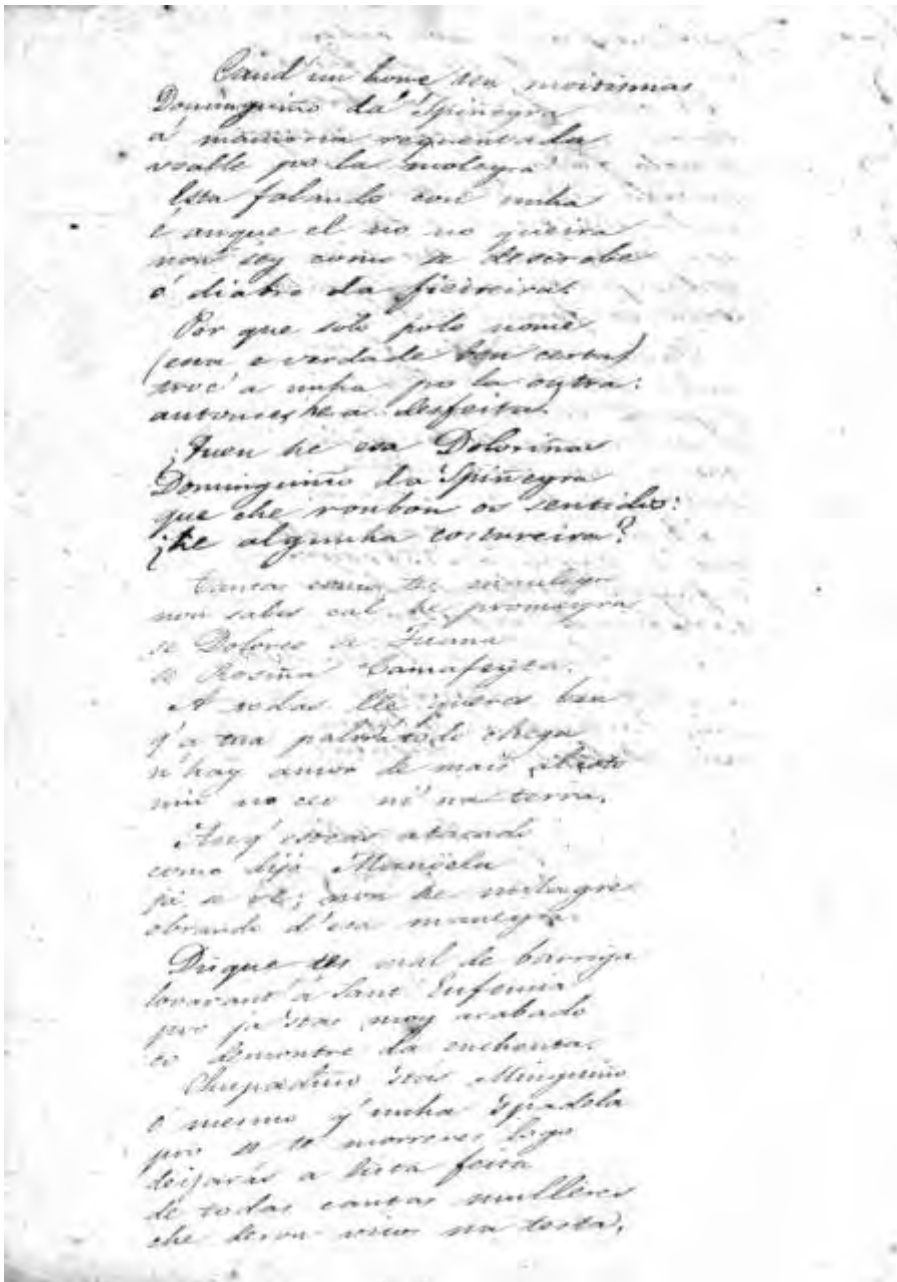 Cand' un home ten moitismas
Dominguiño da 'Spiñeyra
a memoria requentada
vaslle po la moleyra
Esta falando con unha
é anque el no no queira
non sey como se descrobe
o' diabro da fieiteira.
Por que solo polo nome
(esa, e verdade ben certa)
troc' a unha po la outra:
antonces, he a desfeita.
¡Quen he esa Doloriñas
Dominguiño da 'Spiñeyra
que che rouban os sentidos:
¡he algunha costureira?
Tantas
non sabes cal he promeyra
se Dolores se Juana
se Rosiña Camafeyta.
A todas lle queres ben
q'a tua chega
n'hay amor de mais
nin no ceo ni na terra.
Anq' esteas atacado
como dijo Manoela
ja se ve; non he milagre
obrando d'esa maneyra.
Disque tes mal de barriga
levarant' á Sant' Eufemia
pro ja 'stas moy acabado
co demontre da
Chupadiño 'stas Minguiño
o' mesmo q' unha 'spadela
pro se te morreres logo
deijarás a lista feita
de todas cantas mulleres
che deron na testa.